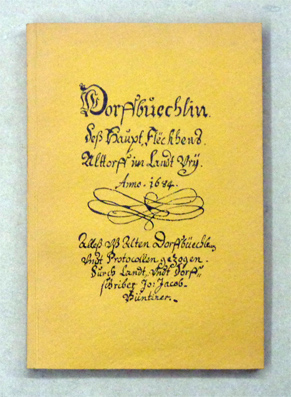 Dorffbüechlin.
deß Haupt Fleckhens
Altorff im Landt Ury.
Anno. 1684.
Alleß uß Alten Dorffbüechlen
Undt Protocollen gezogen.
Durch Landt undt Dorff„
schriber Jo: Jacob.
Büntiner.